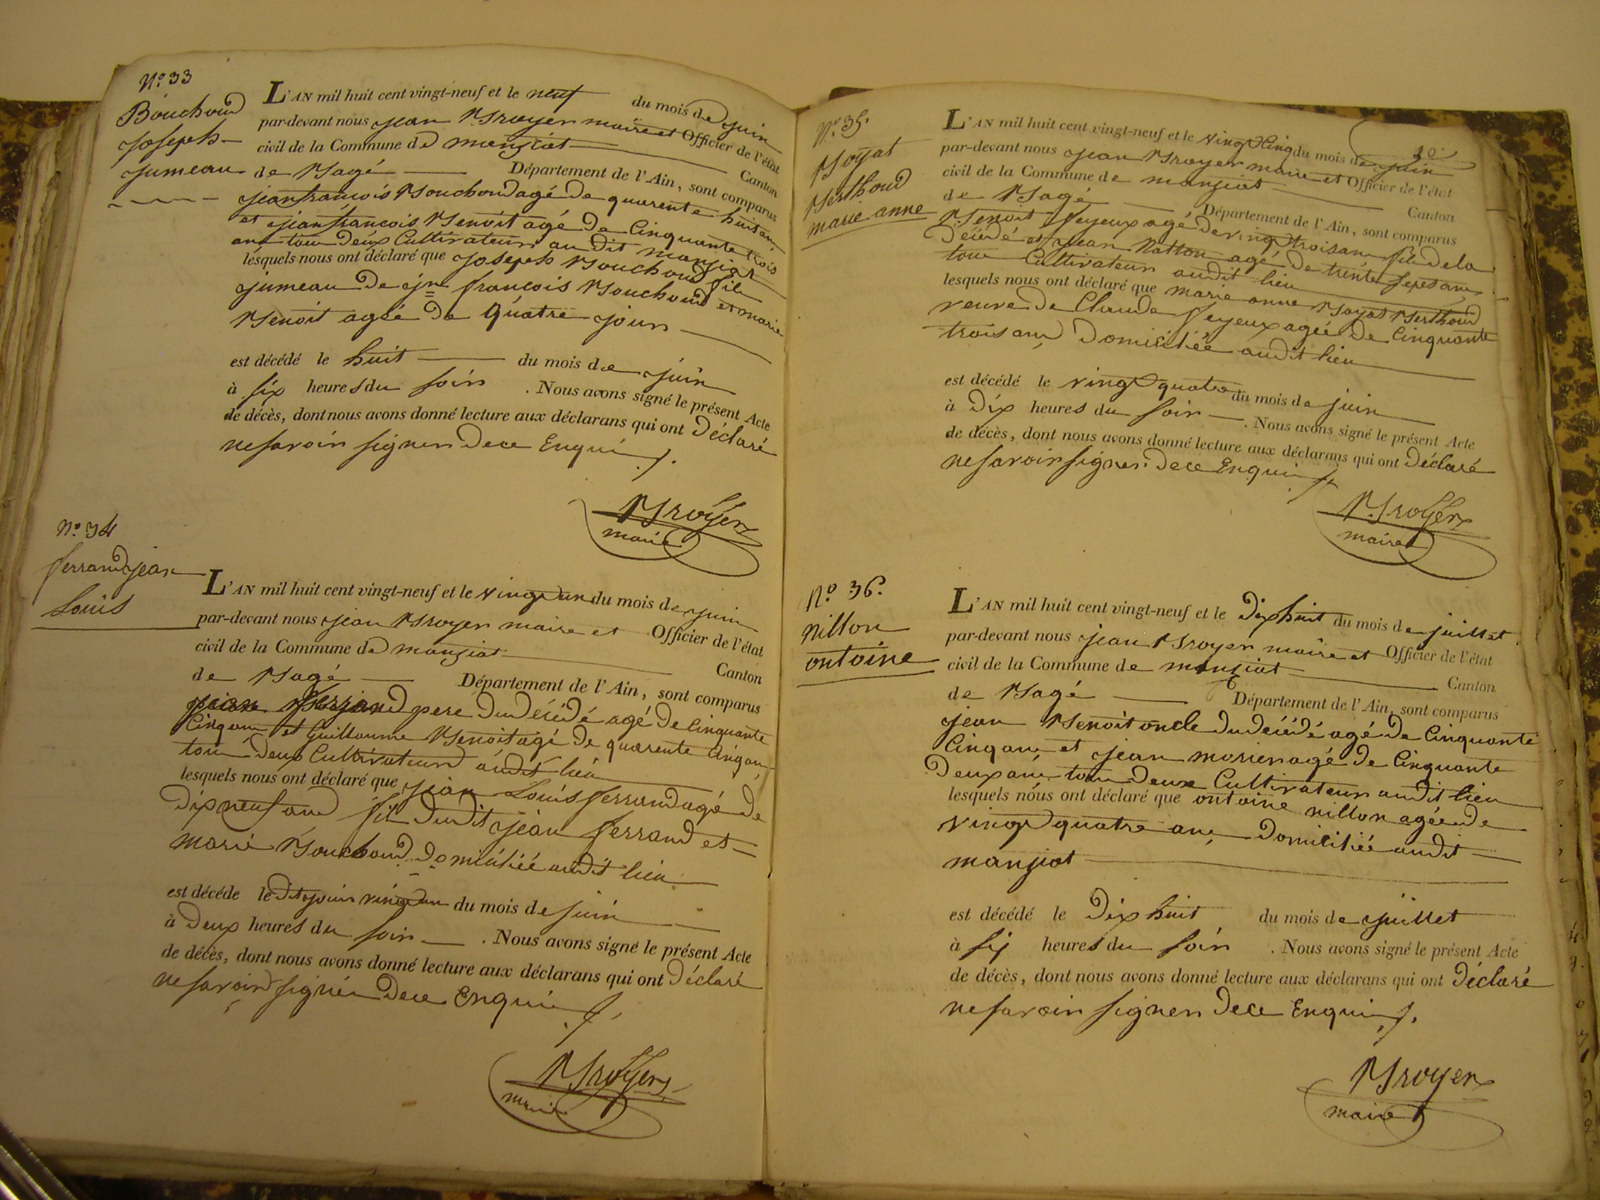 N.o 33
Bouchoud
joseph
jumeau
L'AN mil huit cent vingt-neuf et le neuf du mois de juin
par-devant nous jean Broyer maire et Officier de l'état
civil de la Commune de manziat Canton
de Bagé Département de l'Ain, sont comparus
jean francois Bouchoud agé de quarente huit an
et jean francois Benoit agé de Cinquante trois
ans tous deux Cultivateurs audit manziat
lesquels nous ont déclaré que joseph Bouchoud fils
jumeau de jn francois Bouchoud et marie
Benoit agée de Quatre jours
est décédé le huit du mois de juin
à six heures du soir . Nous avons signé le présent Acte
de décès, dont nous avons donné lecture aux déclarans qui ont Déclaré
ne savoir signer de ce Enqui
Broyer
maire
N.o 34
ferrand jean
Louis
L'AN mil huit cent vingt-neuf et le vingt un du mois de juin
par-devant nous jean Broyer maire et Officier de l'état
civil de la Commune de manziat Canton
de Bagé Département de l'Ain, sont comparus
jean ferrand pere dudécédé agé de Cinquante
Cinq ans et Guillaume Benoit agé de quarente Cinq ans
tous deux Cultivateurs audit lieu
lesquels nous ont déclaré que jean Louis ferrand agé de
Dix neuf ans fils dudit jean ferrand et
marie Bouchoud domicilié audit lieu
est décédé le dit jour vingt un du mois de juin
à Deux heures du soir . Nous avons signé le présent Acte
de décès, dont nous avons donné lecture aux déclarans qui ont Déclaré
ne savoir signer de ce Enqui
Broyer
maire
N.o 35.
Boyat
Berthoud
marie anne
L'AN mil huit cent vingt-neuf et le vingt Cinq du mois de juin
par-devant nous jean Broyer maire et Officier de l'état
civil de la Commune de manziat Canton
de Bagé Département de l'Ain, sont comparus
Benoit feyeux agé de vingt trois ans fils de la
Décédé et jean Natton agé de trente sept ans
tous Cultivateurs audit lieu
lesquels nous ont déclaré que marie anne Boyat Berthoud
veuve de Claude feyeux agée de Cinquante
trois ans Domiciliée audit lieu
est décédé le vingt quatre du mois de juin
à Dix heures du soir . Nous avons signé le présent Acte
de décès, dont nous avons donné lecture aux déclarans qui ont Déclaré
ne savoir signer de ce Enqui
Broyer
maire
N.o 36.
nillon
ontoine
L'AN mil huit cent vingt-neuf et le Dix huit du mois de juillet
par-devant nous jean Broyer maire et Officier de l'état
civil de la Commune de manziat Canton
de Bagé Département de l'Ain, sont comparus
jean Benoit oncle dudécédé agé de Cinquante
Cinq ans et jean morier agé de Cinquante
Deux ans tous deux Cultivateurs audit lieu
lesquels nous ont déclaré que ontoine nillon agée de
vingt quatre ans Domiciliée audit
manziat
est décédé le Dix huit du mois de juillet
à six heures du soir . Nous avons signé le présent Acte
de décès, dont nous avons donné lecture aux déclarans qui ont Déclaré
ne savoir signer de ce Enqui
Broyer
maire